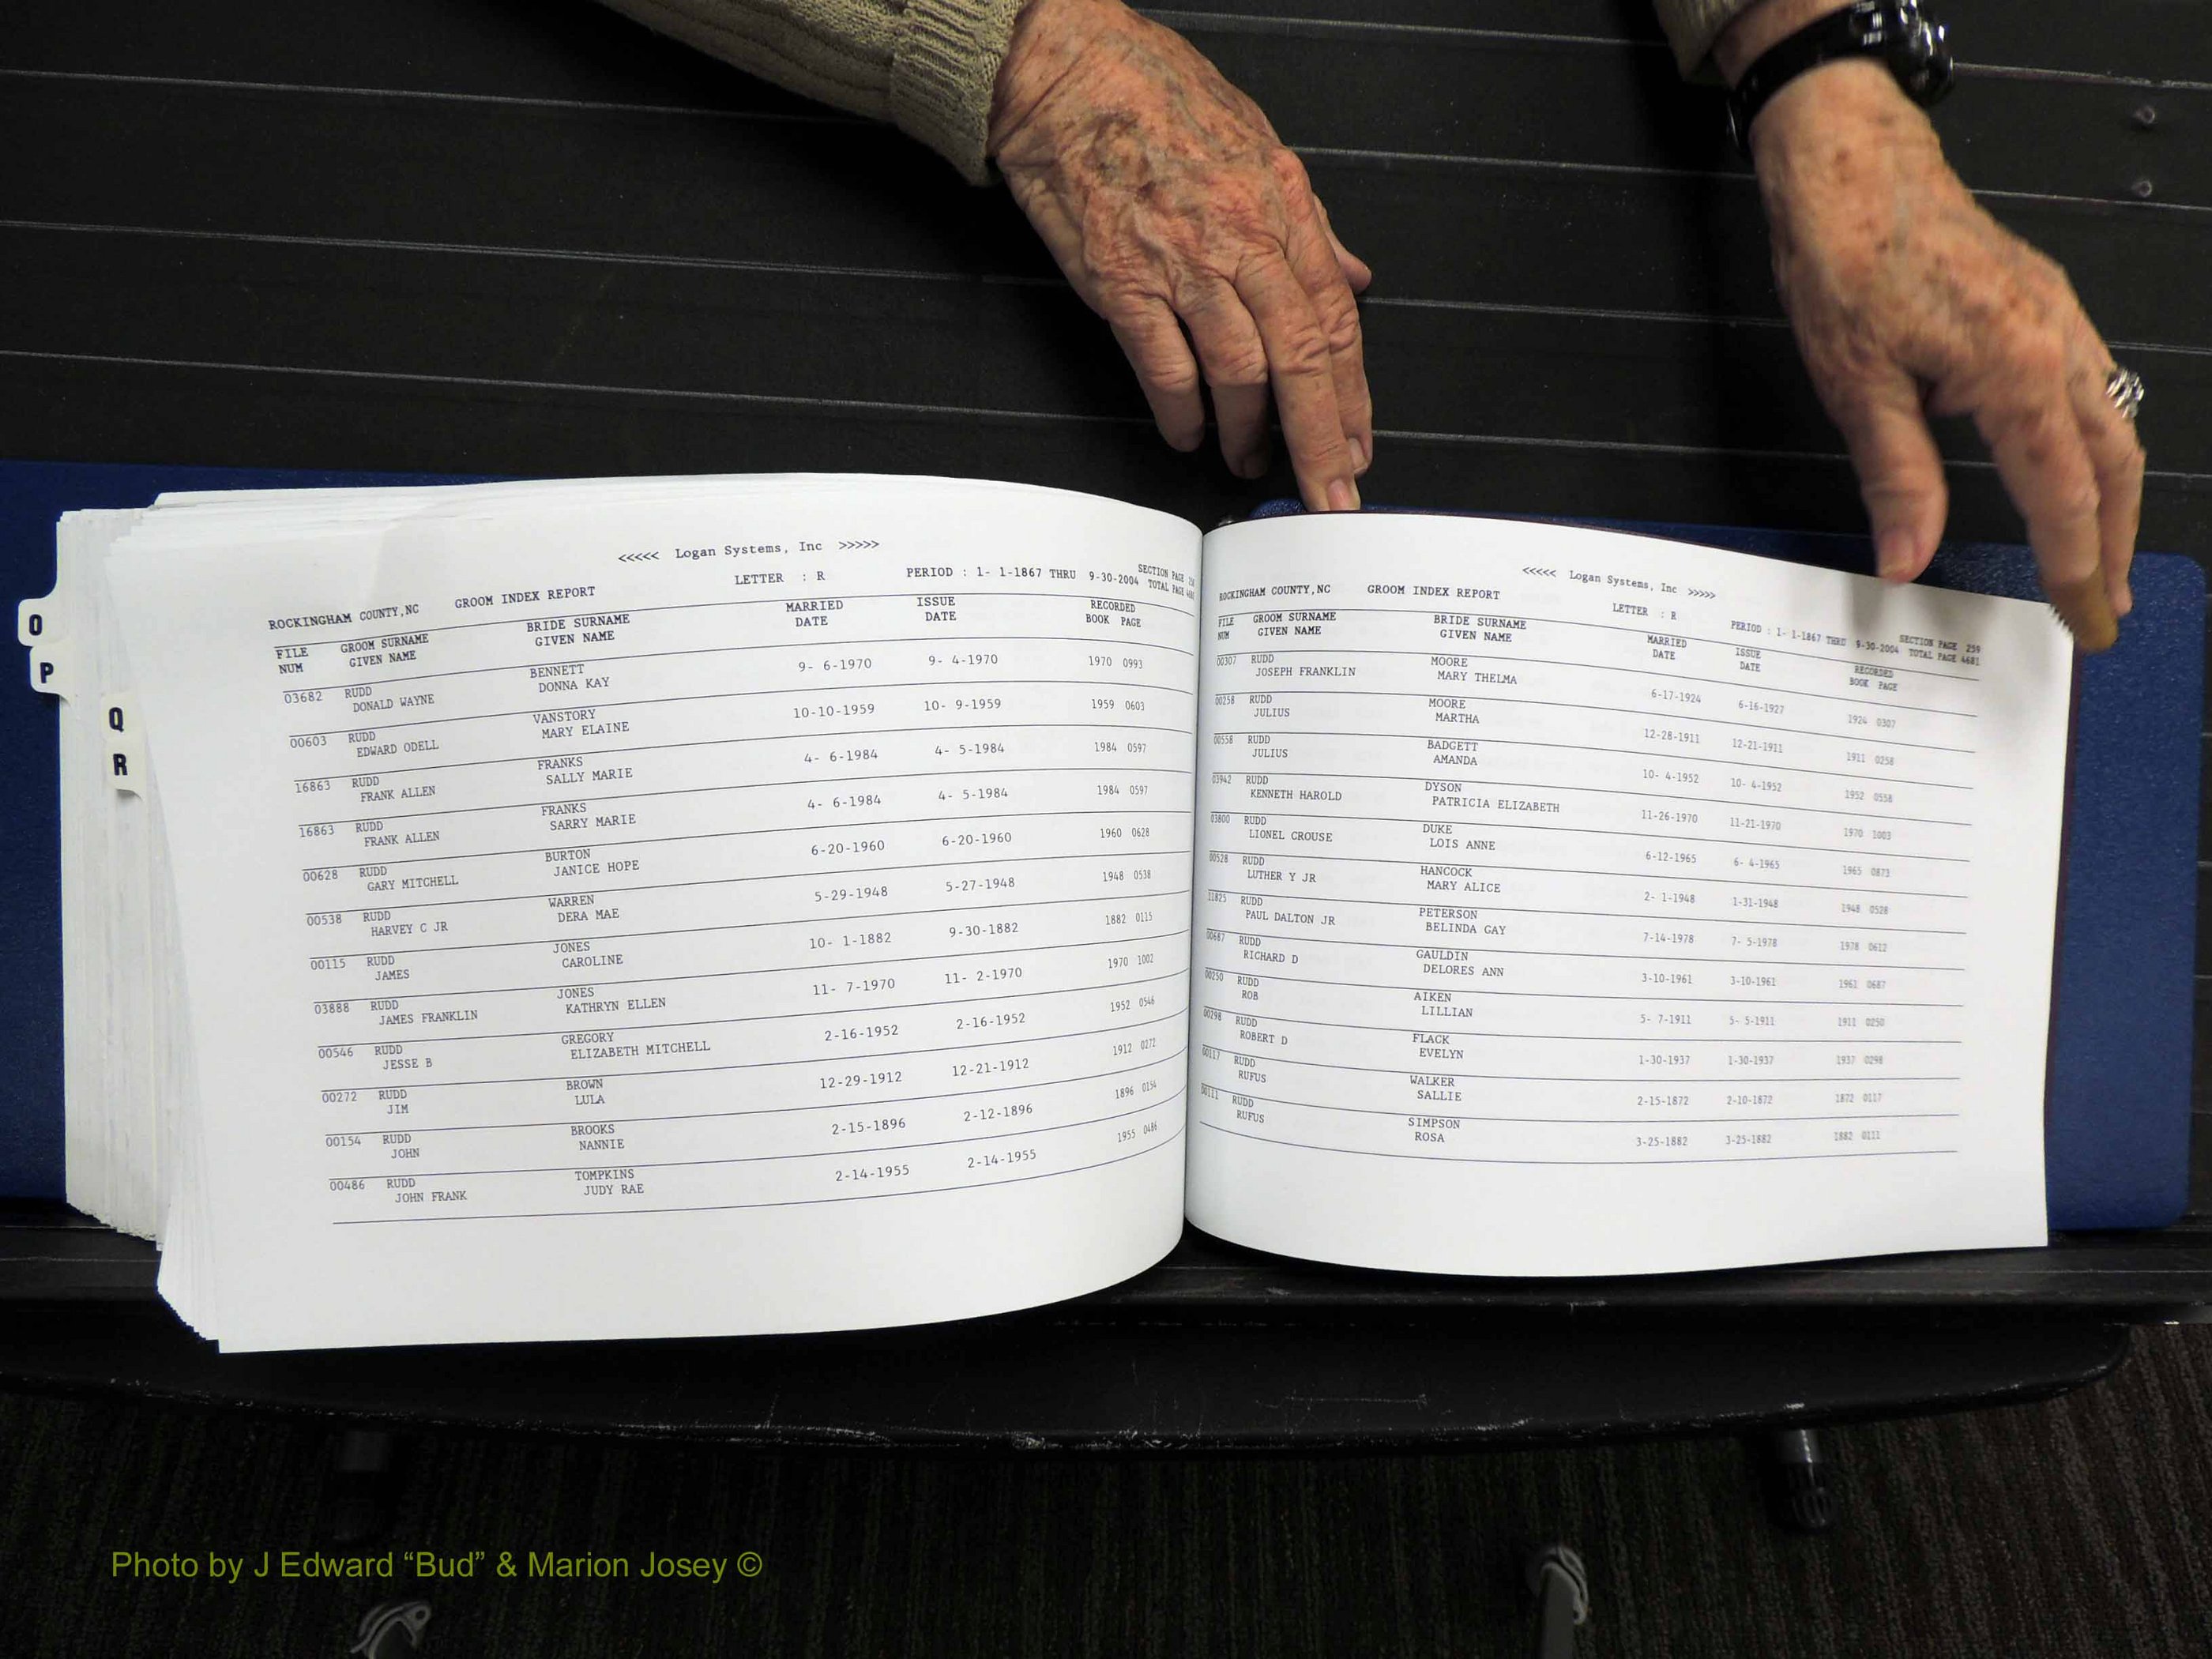 O
P
Q
R
<<<<< Logan Systems, Inc >>>>>
ROCKINGHAM COUNTY,NC GROOM INDEX REPORT LETTER : R PERIOD : 1- 1-1867 THRU 9-30-2004 SECTION PAGE
TOTAL PAGE
FILE GROOM SURNAME BRIDE SURNAME MARRIED ISSUE RECORDED
NUM GIVEN NAME GIVEN NAME DATE DATE BOOK PAGE
03682 RUDD BENNETT 9- 6-1970 9- 4-1970 1970 0993
DONALD WAYNE DONNA KAY
00603 RUDD VANSTORY 10-10-1959 10- 9-1959 1959 0603
EDWARD ODELL MARY ELAINE
16863 RUDD FRANKS 4- 6-1984 4- 5-1984 1984 0597
FRANK ALLEN SALLY MARIE
16863 RUDD FRANKS 4- 6-1984 4- 5-1984 1984 0597
FRANK ALLEN SARRY MARIE
00628 RUDD BURTON 6-20-1960 6-20-1960 1960 0628
GARY MITCHELL JANICE HOPE
00538 RUDD WARREN 5-29-1948 5-27-1948 1948 0538
HARVEY C JR DERA MAE
00115 RUDD JONES 10- 1-1882 9-30-1882 1882 0115
JAMES CAROLINE
03888 RUDD JONES 11- 7-1970 11- 2-1970 1970 1002
JAMES FRANKLIN KATHRYN ELLEN
00546 RUDD GREGORY 2-16-1952 2-16-1952 1952 0546
JESSE B ELIZABETH MITCHELL
00272 RUDD BROWN 12-29-1912 12-21-1912 1912 0272
JIM LULA
00154 RUDD BROOKS 2-15-1896 2-12-1896 1896 0154
JOHN NANNIE
00486 RUDD TOMPKINS 2-14-1955 2-14-1955 1955 0486
JOHN FRANK JUDY RAE
<<<<< Logan Systems, Inc >>>>>
ROCKINGHAM COUNTY,NC GROOM INDEX REPORT LETTER : R PERIOD : 1- 1-1867 THRU 9-30-2004 SECTION PAGE 259
TOTAL PAGE 4681
FILE GROOM SURNAME BRIDE SURNAME MARRIED ISSUE RECORDED
NUM GIVEN NAME GIVEN NAME DATE DATE BOOK PAGE
00307 RUDD MOORE 6-17-1924 6-16-1927 1924 0307
JOSEPH FRANKLIN MARY THELMA
00258 RUDD MOORE 12-28-1911 12-21-1911 1911 0258
JULIUS MARTHA
00558 RUDD BADGETT 10- 4-1952 10- 4-1952 1952 0558
JULIUS AMANDA
03942 RUDD DYSON 11-26-1970 11-21-1970 1970 1003
KENNETH HAROLD PATRICIA ELIZABETH
03800 RUDD DUKE 6-12-1965 6- 4-1965 1965 0873
LIONEL CROUSE LOIS ANNE
00528 RUDD HANCOCK 2- 1-1948 1-31-1948 1948 0528
LUTHER Y JR MARY ALICE
11825 RUDD PETERSON 7-14-1978 7- 5-1978 1978 0612
PAUL DALTON JR BELINDA GAY
00687 RUDD GAULDIN 3-10-1961 3-10-1961 1961 0687
RICHARD D DELORES ANN
00250 RUDD AIKEN 5- 7-1911 5- 5-1911 1911 0250
ROB LILLIAN
00298 RUDD FLACK 1-30-1937 1-30-1937 1937 0298
ROBERT D EVELYN
00117 RUDD WALKER 2-15-1872 2-10-1872 1872 0117
RUFUS SALLIE
00111 RUDD SIMPSON 3-25-1882 3-25-1882 1882 0111
RUFUS ROSA
Photo by J Edward “Bud” & Marion Josey ©